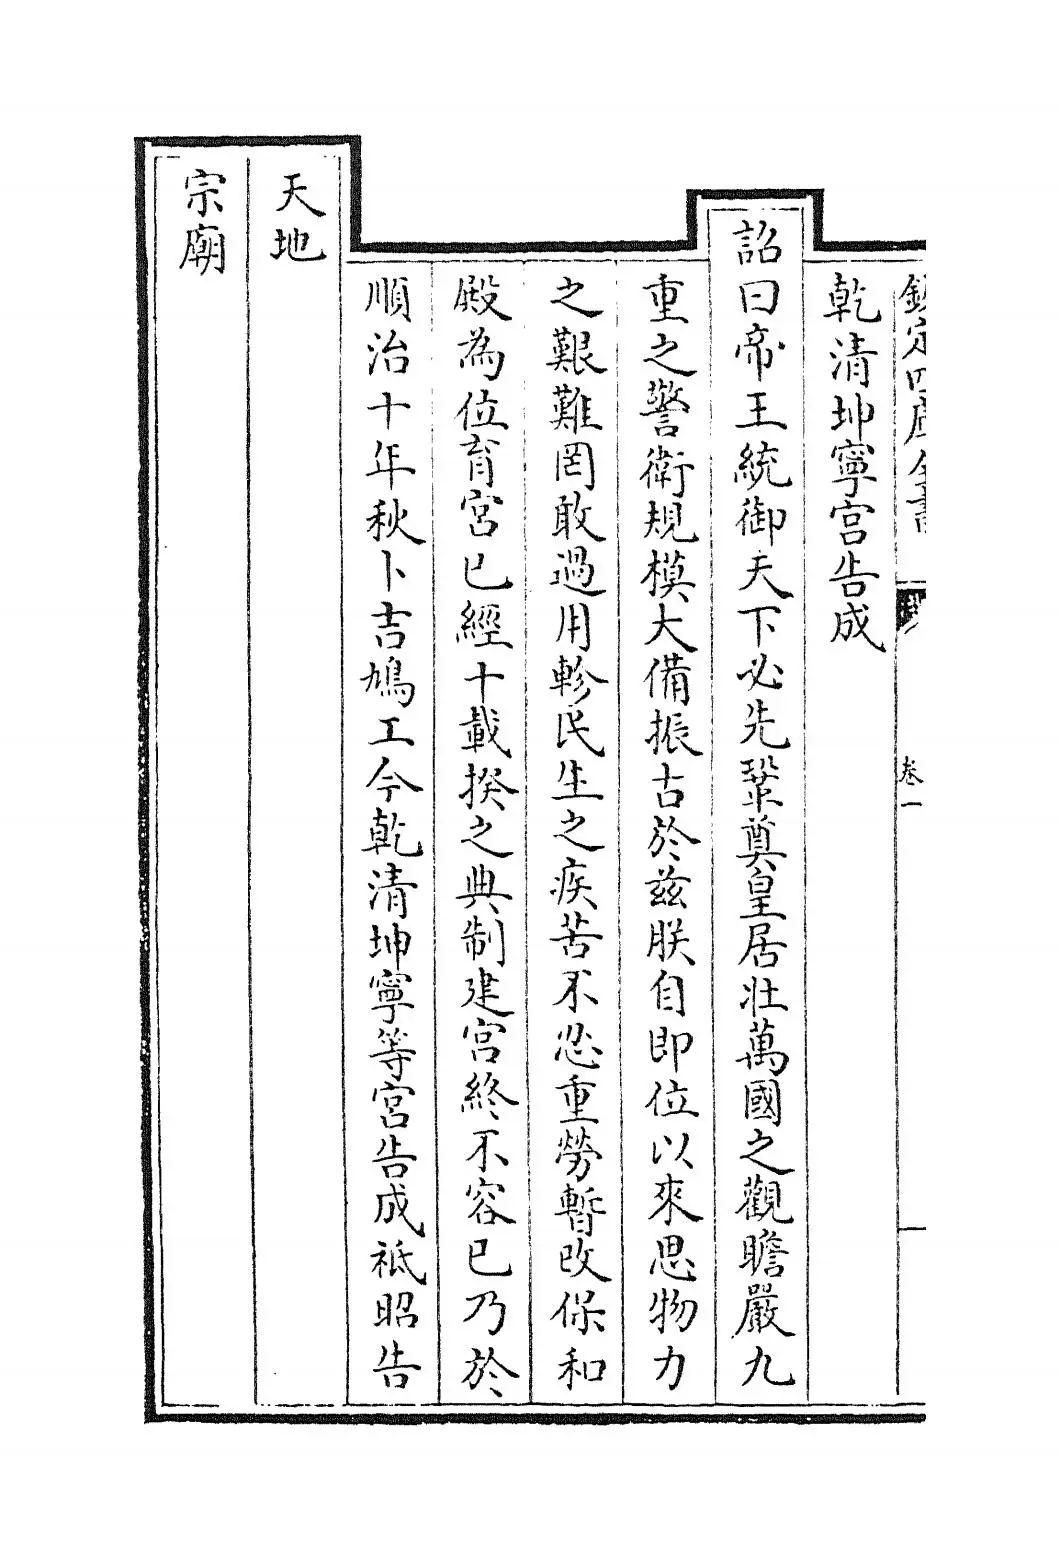 欽定四庫全書
卷一
乾清坤寧宮告成
詔曰帝王統御天下必先鞏奠皇居壯萬國之觀瞻嚴九
重之警衛規模大備振古於茲朕自即位以來思物力
之艱難罔敢過用軫民生之疾苦不忍重勞暫改保和
殿為位育宮已經十載揆之典制建宮終不容已乃於
順治十年秋卜吉鳩工今乾清坤寧等宮告成祗昭告
天地
宗廟